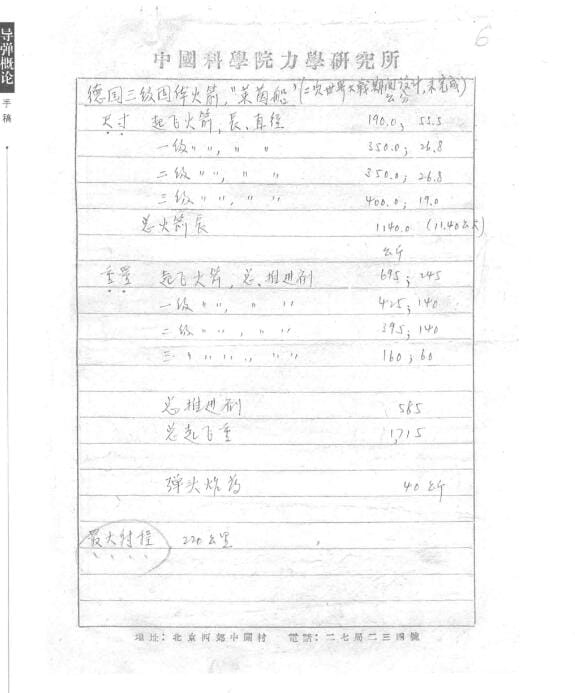 导弹概论
手稿
6
中國科學院力學研究所
德国三级固体火箭,"莱茵船"(二次世界大战期间设计,未完成)
公分
尺寸 起飞火箭,長、直径 190.0; 53.5
一级〃〃, 〃 〃 350.0; 26.8
二级〃〃, 〃 〃 350.0; 26.8
三级〃〃, 〃 〃 400.0; 19.0
总火箭長 1140.0 (11.40公尺)
公斤
重量 起飞火箭,总、推进剂 695; 245
一级〃〃, 〃 〃 425; 140
二级〃〃, 〃 〃 395; 140
三〃〃〃, 〃 〃 160; 60
总推进剂 585
总起飞重 1,715
弹头炸药 40公斤
最大射程 220公里
地址:北京西郊中關村 電話:二七局二三四號